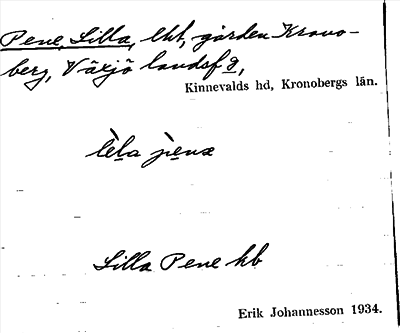 Pene, Lilla, lht, gården Krono-
berg, Växjö landsf g,
Kinnevalds hd, Kronobergs län.
lèla pènæ
Lilla Pene hb
Erik Johannesson 1934.